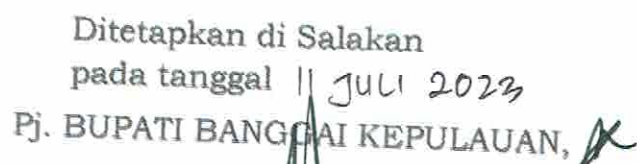 Ditetapkan di Salakan
pada tanggal 11 JULI 2023
Pj. BUPATI BANGGAI KEPULAUAN,